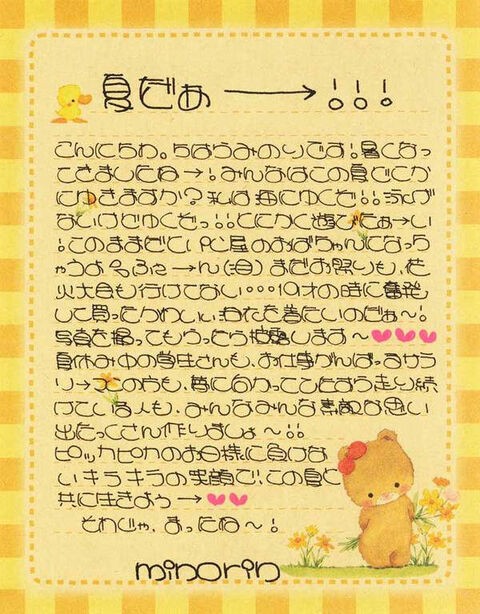 夏だぁ→!!!
こんにちわ。ちはらみのりです!暑くなっ
てきましたね→!みんなはこの夏どこか
にゆきますか?私は海にゆくぞ!!泳げ
ないけどゆくぞっ!!とにかく遊びたぁ→い
!このままだと
PC屋のおばちゃんになっち
ゃうよぉふえ→ん(泪)まだお祭りも、花
火大会も行けてない…19才の時に奮発
して買ったかわいい
ゆかたを着たいのだぁ〜!
写真を撮ってもらったら披露します〜♥♥♥
夏休み中の学生さんも、お仕事がんばるサラ
リ→マンの方も、夢に向かってひたすら走り続
けている人も、みんなみんな素敵な思い
出たっくさん作りましょ〜!!
ピッカピカのお日様に負けな
いキラキラの笑顔で、この夏を
共に生きよう→♥♥
それじゃ、まったね〜!
minorin